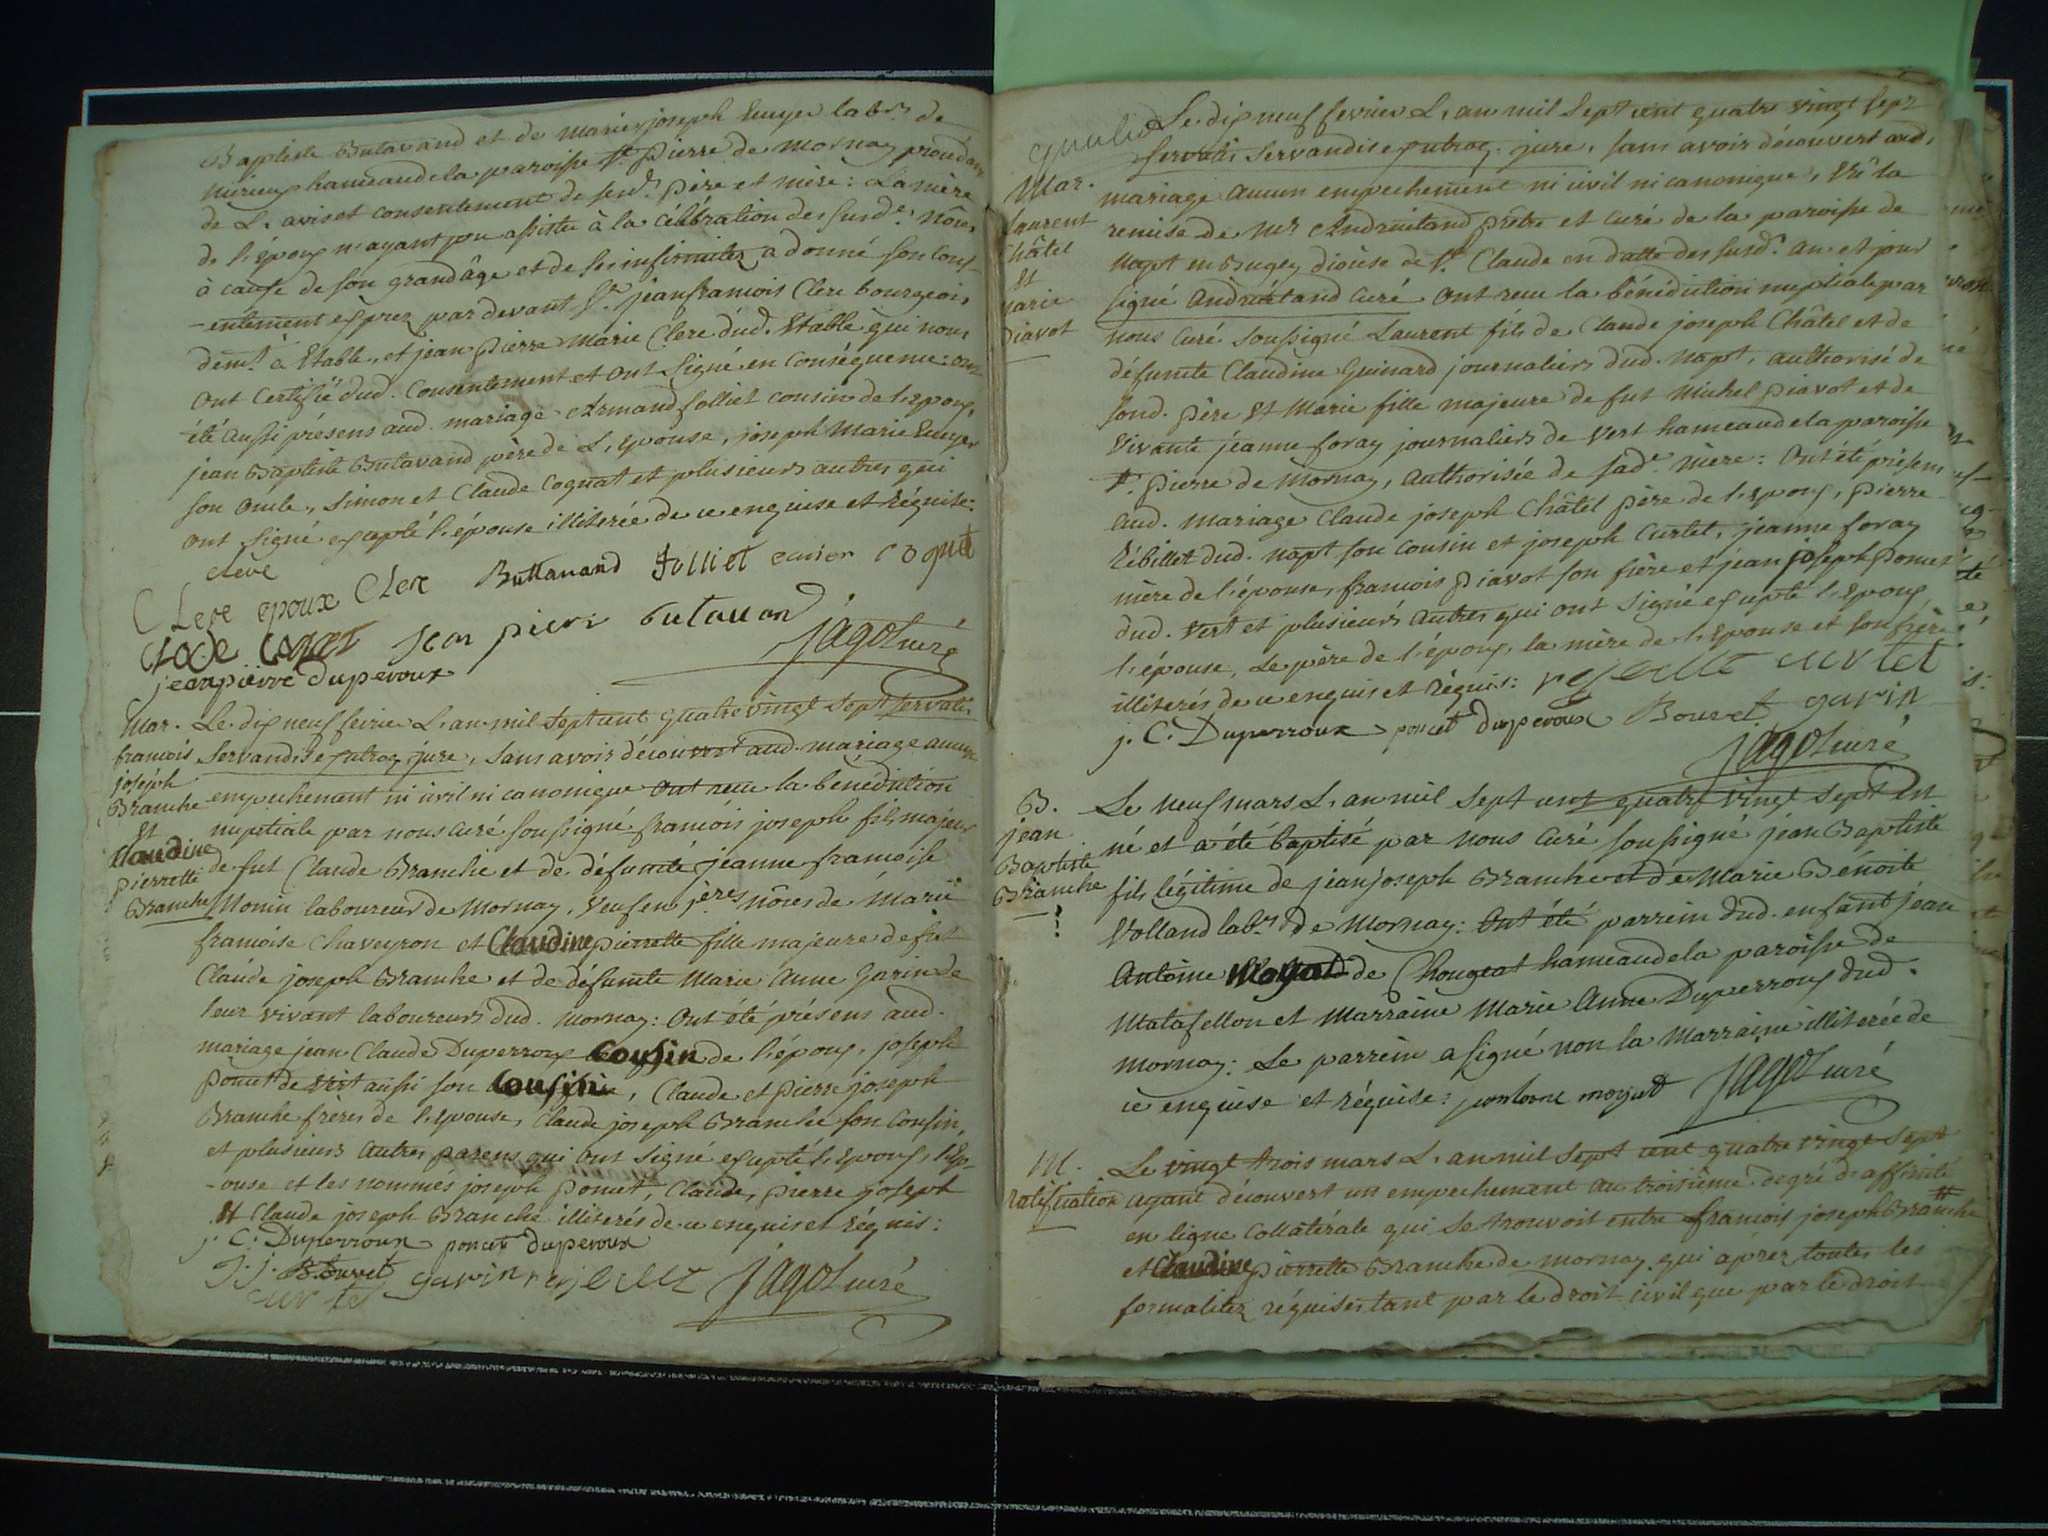 Baptiste Butavand et de Marie joseph Euyer labrs de
hameau de la paroisse St. Pierre de Mornay
de L'avis et consentement de sesd. père et mère: La mère
de l'époux n'ayant pu assister à la célébration des susde. nôces
à cause de son grand âge et de ses infirmités a donné son cons-
-entement exprez par devant Sr. jean francois Clerc bourgeois
demt. à Etable, et jean pierre Marie Clerc dud. Etable qui nous
ont certifié dud. Consentement et ont signé en Conséquence: ont
été aussi présens aud. mariage Armand folliet cousin de l'epoux,
jean Baptiste Butavand père de L'epouse, joseph Marie Euyer
son oncle, Simon et Claude Cognat et plusieurs autres qui
ont signé excepté l'épouse illiterée de ce enquise et réquise:
Clerc epoux Clerc Buttavand Folliet cognat
Jean pierre butavand
jagot curé
jeanpierre duperoux
Mar.
francois
joseph
Branche
Et
Claudine
pierrette
Branche
Le dix neuf fevrier L'an mil sept cent quatre vingt sept servatis
Servandis e putroq. jure, sans avoir découvert aud. mariage aucun
empechement ni civil ni canonique ont recu la bénédiction
nuptiale par nous curé soussigné francois joseph fils majeur
de fut Claude Branche et de défunte jeanne francoise
Monin laboureurs de Mornay, Veuf en jères nôces de Marie
francoise Chaveyron et Claudine pierrette fille majeure de fut
Claude joseph Branche et de défunte Marie Anne Garin de
leur vivant laboureurs dud. Mornay: Ont été présens aud.
mariage jean Claude Duperroux Cousin de l'époux, joseph
poncet de Vert aussi son Cousin, Claude et pierre joseph
Branche frères de l'epouse, Claude joseph Branche son Cousin,
et plusieurs autres parens qui ont signé excepté l'epoux, l'ép-
-ouse et les nommés joseph poncet, Claude, pierre joseph
Et Claude joseph Branche illiterés de ce enquis et réquis:
j. C. Duperroux poncet duperoux
J. j. Bouvet garin joseph
curtet
jagot curé
Mar.
Laurent
Châtel
Et
Marie
Piavot
Le dix neuf fevrier L'an mil Sept cent quatre vingt sept
servatis Servandis e putroq. jure, sans avoir découvert aud.
mariage aucun empechement ni civil ni canonique, Vû la
remise de Mr Andréitand Prêtre et curé de la paroisse de
Napt en Bugey diocèse de St. Claude en datte des susd. an et jour
signé Andréitand curé ont recu la bénédiction nuptiale par
nous curé soussigné Laurent fils de Claude joseph Châtel et de
défunte Claudine Guinard journaliers dud. Napt, authorisé de
sond. père Et Marie fille majeure de fut Michel piavot et de
Vivante jeanne foray journaliers de Vert hameau de la paroisse
St. pierre de Mornay, authorisée de sade. mère: Ont été présens
aud. mariage Claude joseph Châtel père de l'epoux, pierre
Rébillet dud. napt son cousin et joseph Curtet, jeanne foray
mère de l'épouse, francois piavot son frère et jean joseph poncet
dud. Vert et plusieurs autres qui ont signé excepté l'epoux,
l'épouse, Le père de l'époux, la mère de l'epouse et son frère
illiterés de ce enquis et réquis: curtet
j. C. Duperroux poncet duperoux Bouvet garin
jagot curé
B.
jean
Baptiste
Branche
Le neuf mars L'an mil sept cent quatre vingt sept est
né et a été baptisé par nous curé soussigné jean Baptiste
fils légitime de jean joseph Branche et de Marie Bénoite
Volland labrs de Mornay: Ont été parrein dud. enfant jean
Antoine Moyat de Chougeat hameau de la paroisse de
Matafellon et Marraine Marie Anne Duperroux dud.
Mornay: Le parrein a signé non la Marraine illiterée de
ce enquise et réquise: jantoine moyat jagot curé
M.
ratification
Le vingt trois mars L'an mil sept cent quatre vingt sept
ayant découvert un empechement au troisième degré d'affinité
en ligne Collatérale qui se trouvoit entre francois joseph Branche
et Claudine pierrette Branche de mornay qui après toutes les
formalitez réquises tant par le droit civil que par le droit